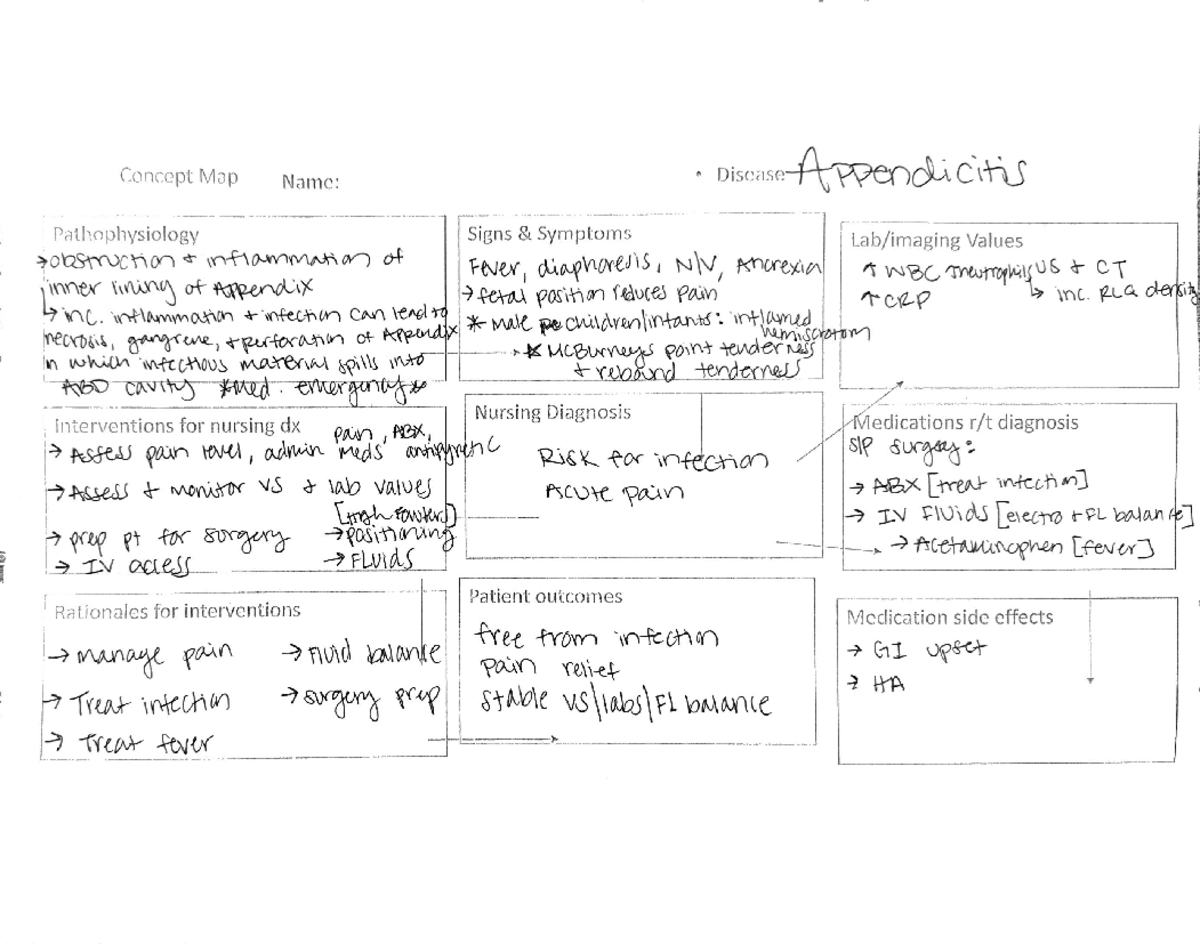 Concept Map Name:
• Disease Appendicitis
Pathophysiology
→ obstruction + inflammation of
inner lining of Appendix
↳ inc. inflammation + infection can lead to
necrosis, gangrene, + perforation of Appendix
in which infectious material spills into
ABD cavity *med. emergency*
Signs & Symptoms
Fever, diaphoresis, N/V, Anorexia
→ fetal position reduces pain
* Male children/infants: inflamed
hemiscrotom
* McBurneys point tenderness
+ rebound tenderness
Lab/imaging Values
↑ WBC ↑neutrophils US + CT
↑ CRP ↳ inc. RLQ density
Interventions for nursing dx
→ Assess pain level, admin pain, ABX, antipyretic meds
→ Assess + monitor VS + lab values
[high fowlers]
→ prep pt for surgery → positioning
→ IV access → FLUIDS
Nursing Diagnosis
Risk for infection
Acute pain
Medications r/t diagnosis
S/P surgery:
→ ABX [treat infection]
→ IV Fluids [electro + FL balance]
→ Acetaminophen [fever]
Rationales for interventions
→ manage pain → Fluid balance
→ Treat infection → surgery prep
→ Treat fever
Patient outcomes
free from infection
pain relief
stable VS/labs/FL balance
Medication side effects
→ GI upset
→ HA